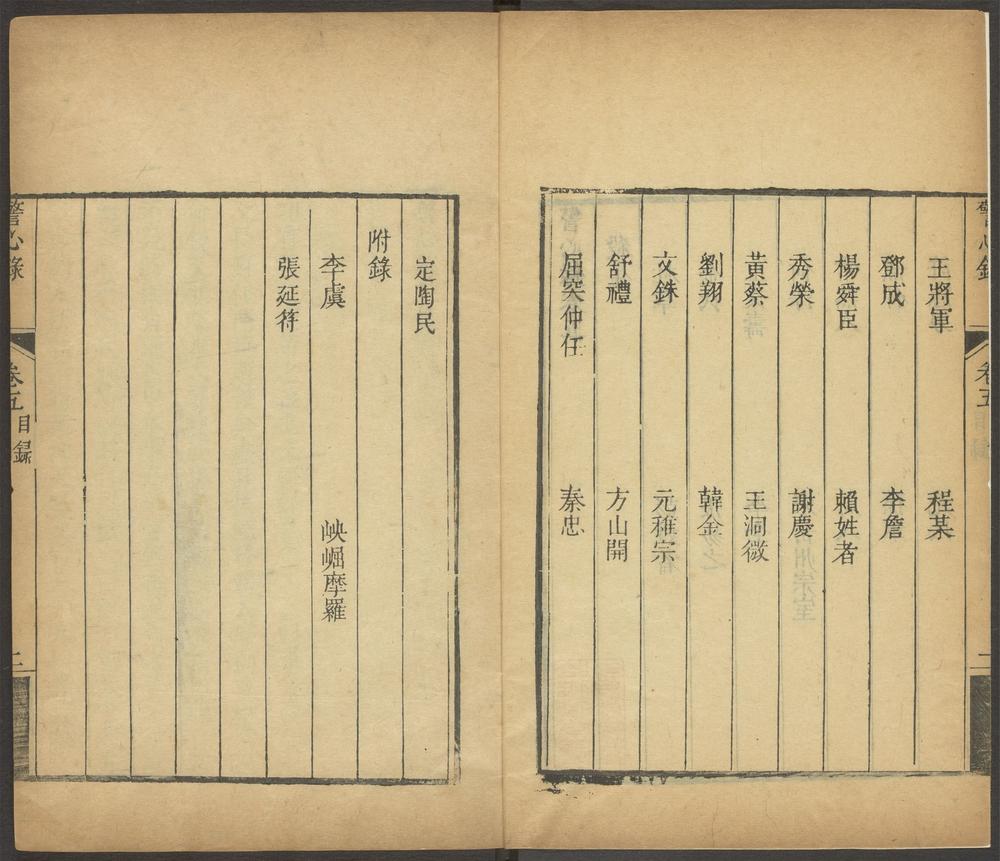 王將軍　程某
鄧成　李詹
楊舜臣　賴姓者
秀榮　謝慶
黃蔡　王洞微
劉翔　韓金
文銖　元稚宗
舒禮　方山開
屈突仲任　秦忠
定陶民
附錄
李虞　㟅崛摩羅
張延符
警心錄　卷五目錄　二